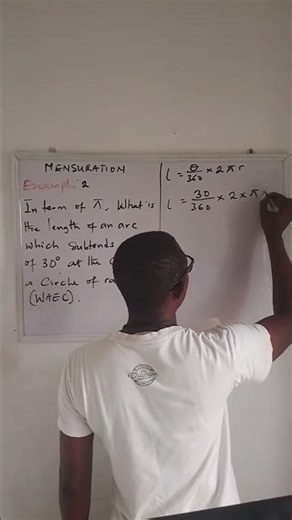 MENSURATION
Example 2
In term of π, What is
the length of an arc
which Subtends
of 30° at the
a Circle of
(WAEC).
l = θ/360 × 2πr
l = 30/360 × 2 × π ×